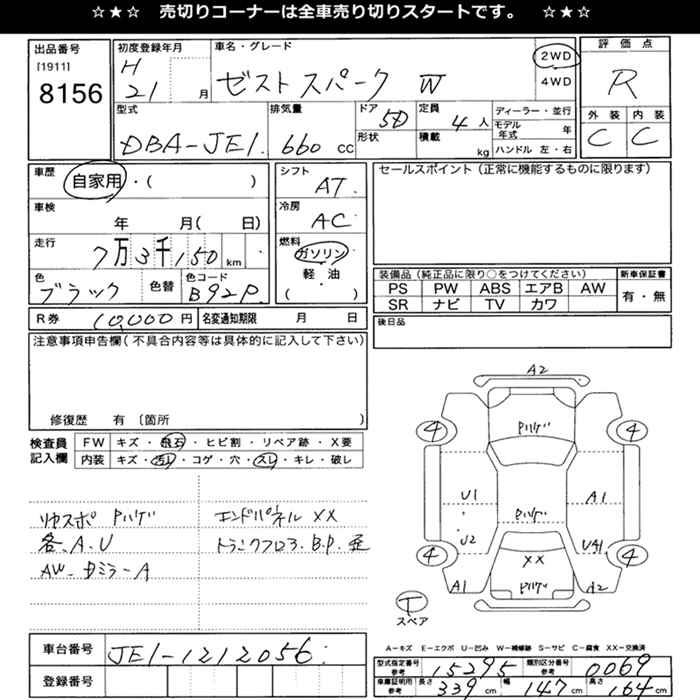 ☆★☆ 売切りコーナーは全車売り切りスタートです。 ☆★☆
出品番号
[1911]
8156
初度登録年月
H
21 月
車名・グレード
ゼスト スパーク W
2WD
4WD
評価点
R
外装 内装
C C
型式
DBA-JE1
排気量
660 CC
ドア
5D
形状
定員
4 人
積載
kg
ディーラー・並行
モデル年式 年
ハンドル 左・右
車歴
自家用・( )
車検
年 月( 日)
走行
7万3千150 km
色
ブラック
色替
色コード
B92P
シフト
AT
冷房
AC
燃料
ガソリン
軽・油
( )
セールスポイント(正常に機能するものに限ります)
装備品(純正品に限り○をつけてください)
PS PW ABS エアB AW
SR ナビ TV カワ
新車保証書
有・無
R券 10,000円 名変通知期限 月 日
後日品
注意事項申告欄(不具合内容等は具体的に記入して下さい)
修復歴 有〔箇所 〕
検査員
記入欄
FW キズ・飛石・ヒビ割・リペア跡・X要
内装 キズ・汚レ・コゲ・穴・スレ・キレ・破レ
リヤスポ Pハゲ
各.A.U
AW-ドミラーA
エンドパネル XX
トランクフロア.B.P.歪
A2
4 Pハゲ 4
U1 A1
Pハゲ
U2 U41
4 XX 4
A1 Pハゲ A2
T
スペア
A-キズ E-エクボ U-凹み W-補修跡 S-サビ C-腐食 XX-交換済
車台番号 JE1-1212056
登録番号
型式指定番号 参考 15295 類別区分番号 参考 0069
車庫証明用 参考 長さ 339 cm 幅 147 cm 高さ 164 cm